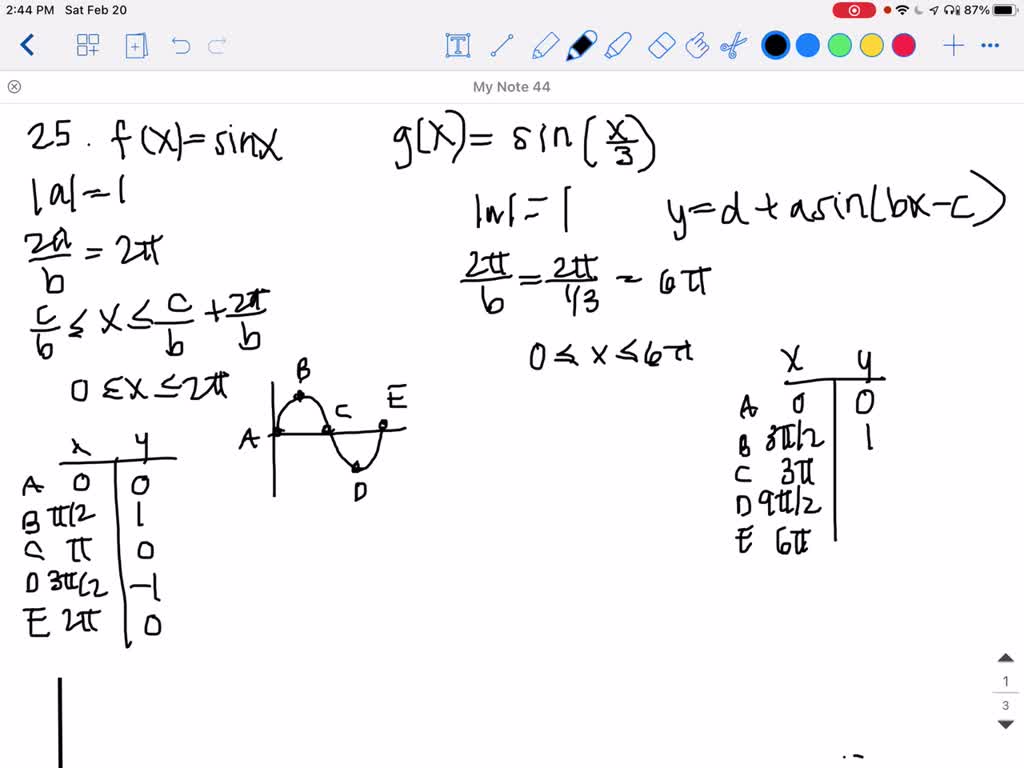 2:44 PM Sat Feb 20 87%
My Note 44
25. f(x)=sinx
|a|=1
2π/b = 2π
c/b ≤ x ≤ c/b + 2π/b
0 ≤ x ≤ 2π
x y
A 0 0
B π/2 1
C π 0
D 3π/2 -1
E 2π 0
A B C D E
g(x)= sin(x/3)
|a|=1
y=d+asin(bx-c)
2π/b = 2π/1/3 = 6π
0 ≤ x ≤ 6π
x y
A 0 0
B 3π/2 1
C 3π
D 9π/2
E 6π
1
3